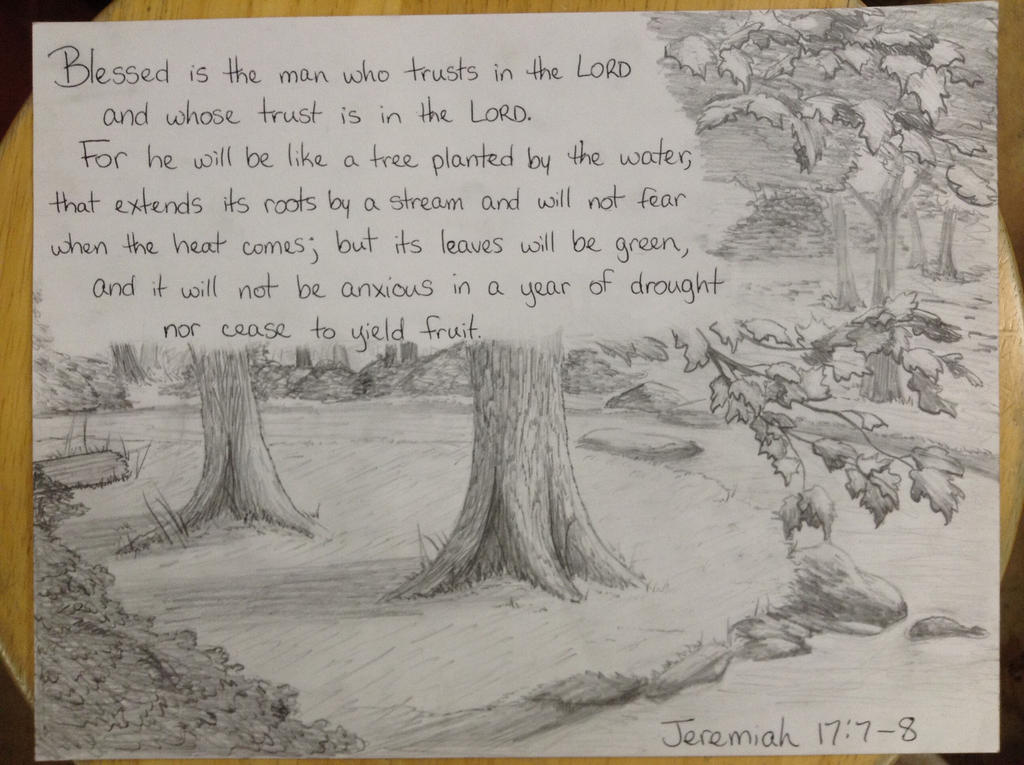 Blessed is the man who trusts in the LORD
and whose trust is in the LORD.
For he will be like a tree planted by the water,
that extends its roots by a stream and will not fear
when the heat comes; but its leaves will be green,
and it will not be anxious in a year of drought
nor cease to yield fruit.
Jeremiah 17:7-8